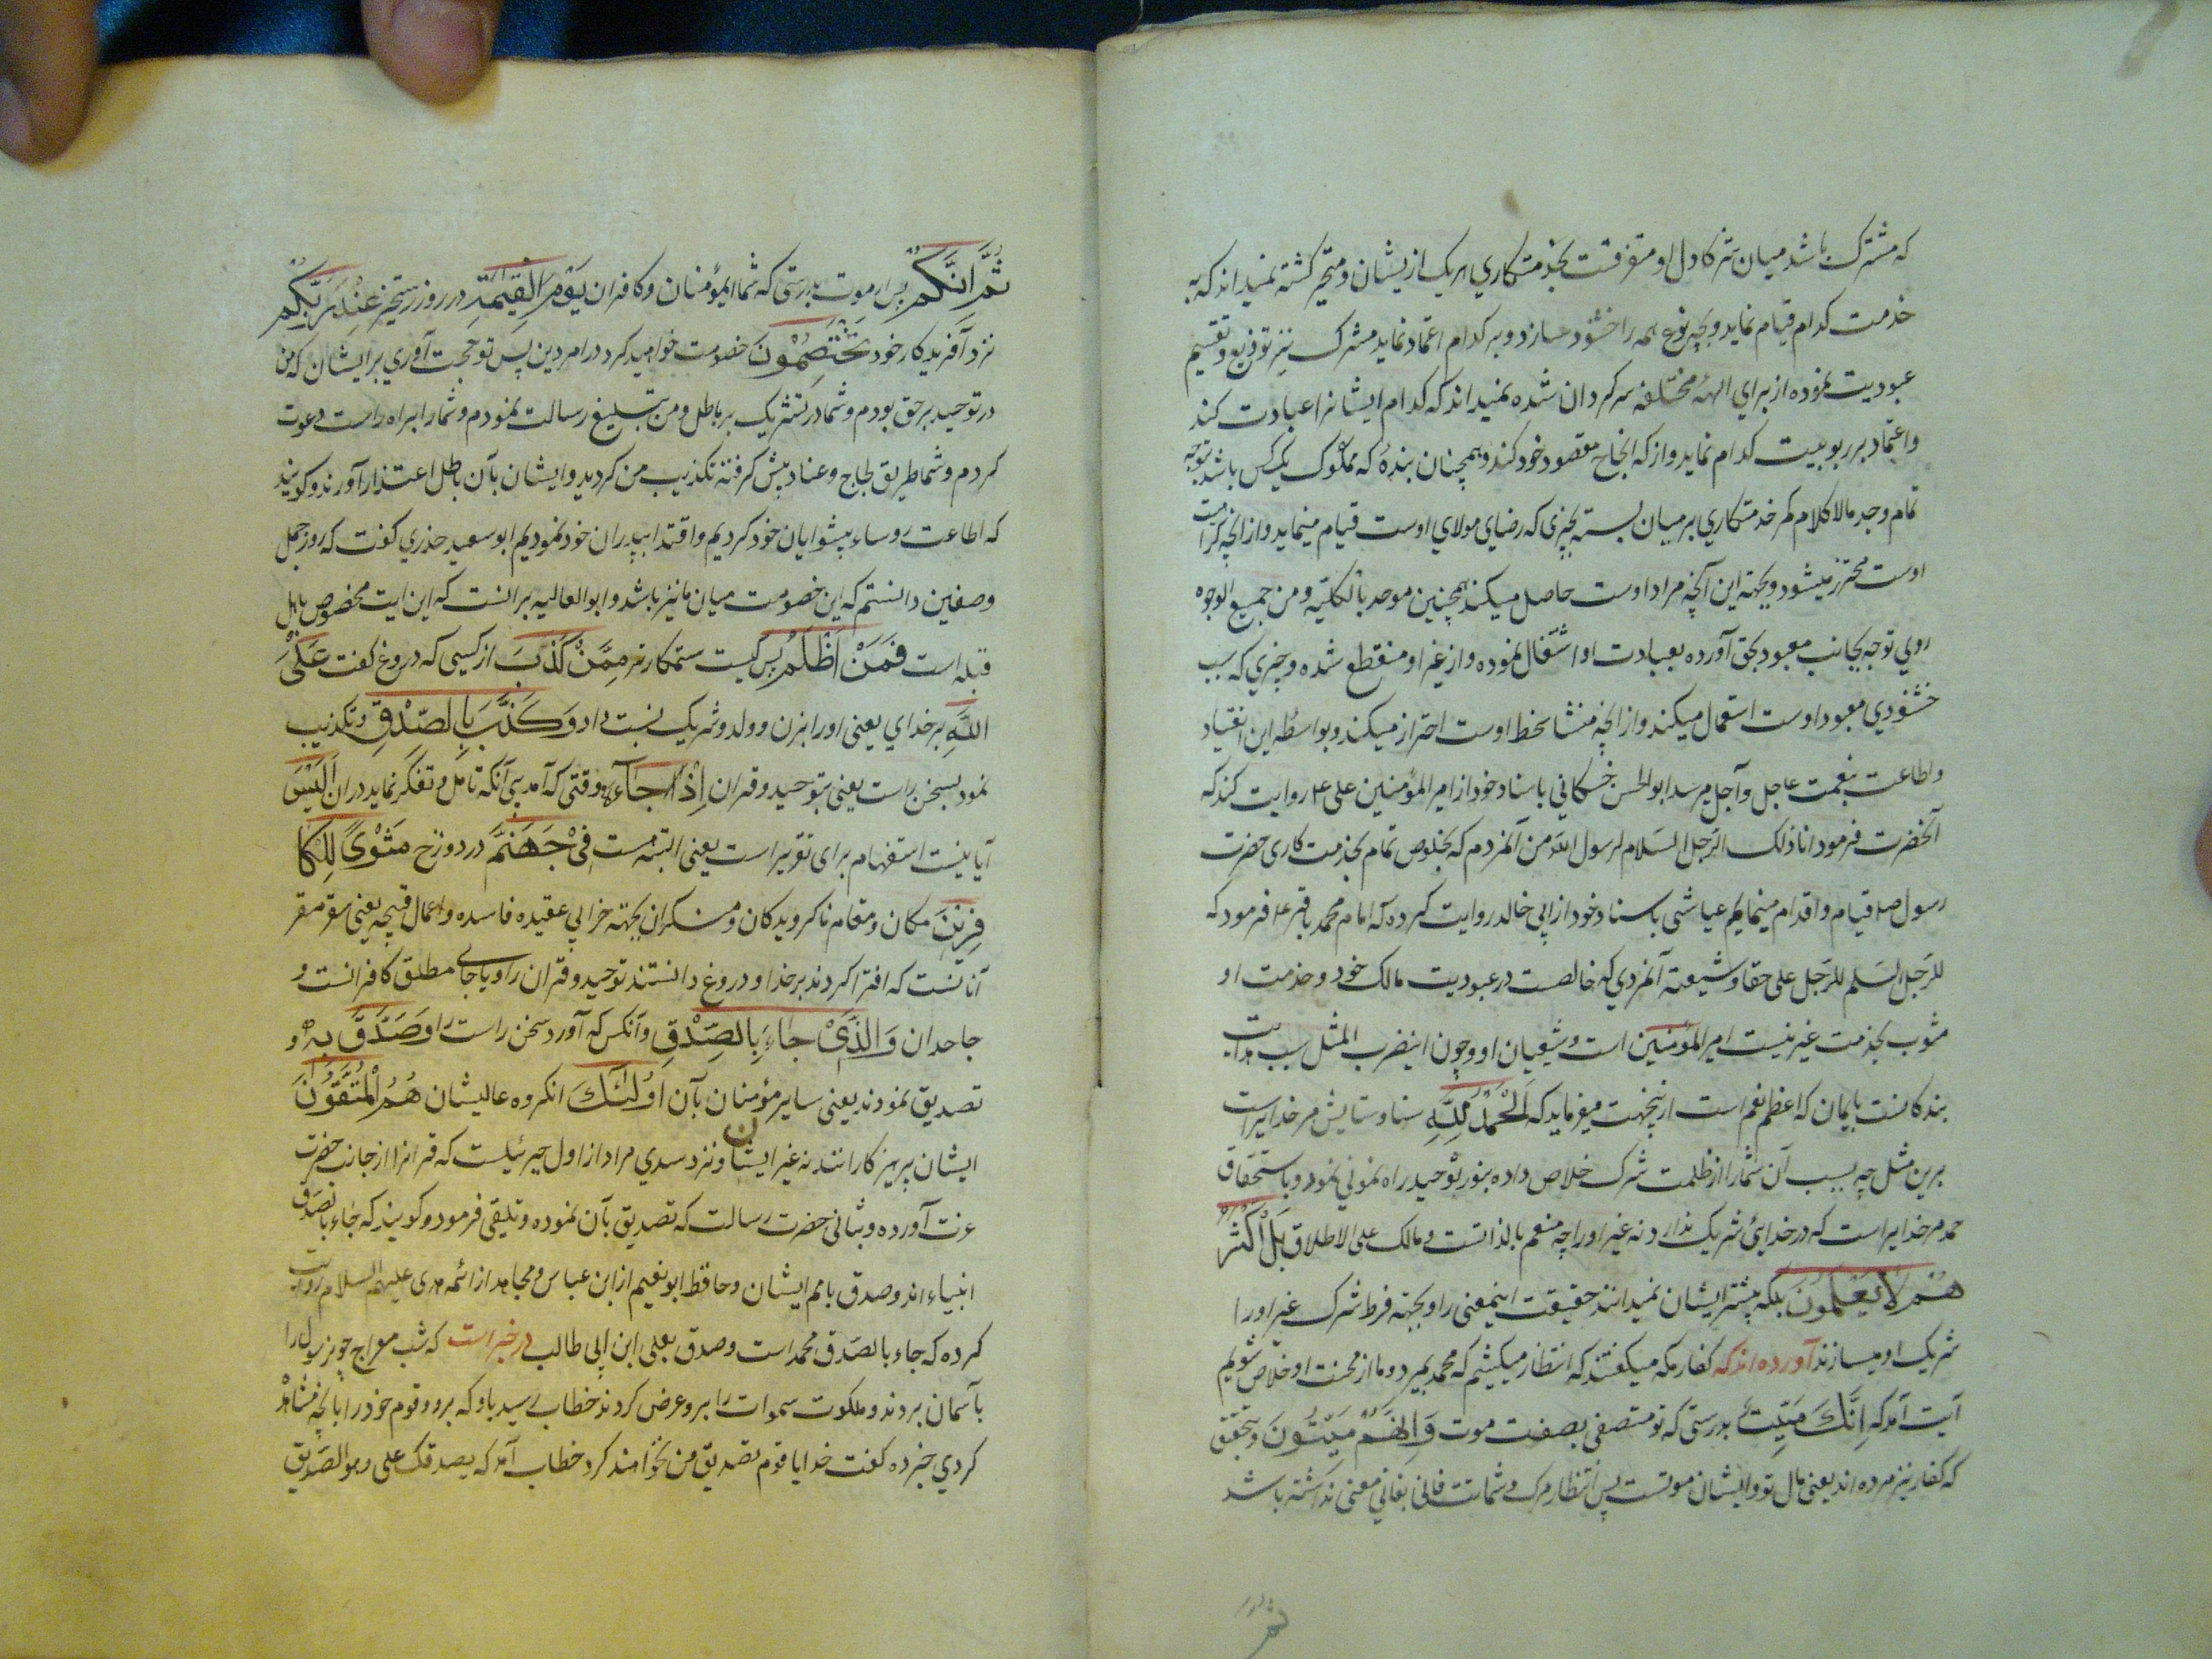 که مشترک باشد میان شرکا دل او متفرقست بخدمتکاری هر یک ازیشان و متحیر کشته نمیداند که به
خدمت کدام قیام نماید و بچه نوع همه را خشنود سازد و بر کدام اعتماد نماید مشرک نیز توزیع و تقسیم
عبودیت نموده از برای الههٔ مختلفه سرکردان شده نمیداند که کدام ایشانرا عبادت کند
و اعتماد بر ربوبیت کدام نماید و از که انجاح مقصود خود کند و همچنان بندهٔ که مملوک یک کس باشد بتوجه
تمام وجد مالا کلام کمر خدمتکاری بر میان بسته بچیزی که رضای مولای اوست قیام مینماید و از انچه کراهت
اوست محترز میشود و بجهته این آنچه مراد اوست حاصل میکند همچنین موحد بالکلیه و من جمیع الوجوه
روی توجه بجانب معبود بحق آورده بعبادت او اشتغال نموده و از غیر او منقطع شده و چیزی که سبب
خشنودی معبود اوست استعمال میکند و از انچه منشا سخط اوست احتراز میکند و بواسطه این انقیاد
و اطاعت بنعمت عاجل و آجل میرسد ابوالحسن خسکانی باسناد خود از امیر المؤمنین علی ع روایت کند که
آنحضرت فرمود انا ذلک الرجل السلام لرسول الله من آنمردم که بخلوص تمام بخدمت کاری حضرت
رسول ص قیام و اقدام مینمایم عیاشی باسناد خود از ابی خالد روایت کرده که امام محمد باقر ع فرمود که
للرجل السلم للرجل علی حقا و شیعته آنمردی که خالصست در عبودیت مالک خود و خدمت او
مثوب بخدمت غیر نیست امیر المؤمنین است و شیعیان او و چون اینضرب المثل سبب هدایت
بندکانست بایمان که اعظم نعم است ازینجهت میفرماید که اَلْحَمْدُ لِلّهِ سنا و ستایش مر خدایراست
برین مثل چه بسبب آن شما را از ظلمت شرک خلاص داده بنور توحید راه نمونی نمود و باستحقاق
حمد مر خدایراست که در خدایی شریک ندارد نه غیر او را چه منعم بالذاتست و مالک علی الاطلاق بَلْ اَکْثَرُ
هُمْ لا یَعْلَمُونَ بلکه بیشتر ایشان نمیدانند حقیقت اینمعنی را و بجهته فرط شرک غیر او را
شریک او میسازند آورده اند که کفار مکه میکفتند که انتظار میکشیم که محمد بمیرد و ما از محنت او خلاص شویم
آیت آمد که اِنَّکَ مَیِّتٌ بدرستی که تو متصفی بصفت موت وَ اِنَّهُمْ مَیِّتُونَ و بتحقیق
که کفار نیز مرده اند یعنی مال تو و ایشان موتست پس انتظار مرک و شماتت فانی بفانی معنی نداشته باشد
ثم
ثُمَّ اِنَّکُمْ پس از موت بدرستی که شما ایمؤمنان و کافران یَوْمَ الْقِیمَةِ در روز رستخیز عِنْدَ رَبِّکُمْ
نزد آفریدکار خود تَخْتَصِمُونَ خصومت خواهید کرد در امر دین پس تو حجت آوری بر ایشان که من
در توحید بر حق بودم و شما در تشریک بر باطل و من تبلیغ رسالت نمودم و شما را براه راست دعوت
کردم و شما طریق لجاج و عناد پیش کرفته تکذیب من کردید و ایشان بآن باطل اعتذار آورند و کویند
که اطاعت روساء پیشوایان خود کردیم و اقتدا بپدران خود نمودیم ابو سعید خذری کفت که روز جمل
وصفین دانستم که این خصومت میان ما نیز باشد و ابو العالیه برانست که این ایت مخصوص باهل
قبله است فَمَنْ اَظْلَمُ پس کیست ستمکارتر مِمَّنْ کَذَبَ از کسی که دروغ کفت عَلَی
اللهِ بر خدای یعنی او را بزن و ولد و شریک نسبت داد وَ کَذَّبَ بِالصِّدْقِ و تکذیب
نمود بسخن راست یعنی بتوحید و قران اِذْ جَآءَهُ وقتی که آمد بی آنکه تامل و تفکر نماید دران اَلَیْسَ
آیا نیست استفهام برای تقریر است یعنی البته هست فِی جَهَنَّمَ در دوزخ مَثْوًی لِلْکا
فِرینَ مکان و مقام ناکرویدکان و منکران بجهته خرابی عقیده فاسده و اعمال قبیحه یعنی سقر مقر
آنانست که افترا کردند بر خدا و دروغ دانستند توحید و قران را و یا جای مطلق کافرانست و
جاحدان وَ الَّذی جاءَ بِالصِّدْقِ و آنکس که آورد سخن راست را وَ صَدَّقَ بِهِ و
تصدیق نمودند یعنی سایر مؤمنان بآن اُولئِکَ انکروه عالیشان هُمُ الْمُتَّقُونَ
ایشان پرهیز کارانند نه غیر ایشان و نزد سدی مراد از اول جبرئیلست که قرانرا از جانب حضرت
عزت آورده و بثانی حضرت رسالت که تصدیق بآن نموده و تلقی فرمود و کویند که جاء بالصدق
انبیاء اند و صدق بامم ایشان و حافظ ابو نعیم از ابن عباس و مجاهد از ائمه هدی علیهم السلام روایت
کرده که جاء بالصدق محمد است و صدق بعلی ابن ابی طالب در خبر است که شب معراج چون رسول را
بآسمان بردند و ملکوت سموات را برو عرض کردند خطاب رسید باو که برو و قوم خود را بانچه مشاهد
کردی خبر ده کفت خدایا قوم تصدیق من نخواهند کرد خطاب آمد که یصدقک علی و هو الصدیق